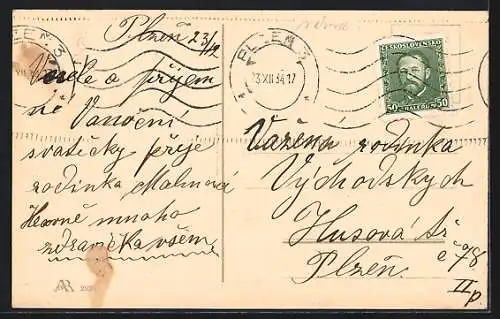 Plzeň 23/12
Veselé a příjem
né Vanoční
svatičky přije
rodinka Malinová
mnoho
zdraví všem
PLZEŇ
23 XII 34. 17
ČESKOSLOVENSKO
50 HALÉŘŮ 50
Vážená rodinka
Východskych
Husová tř.
č 78
Plzeň. II p.